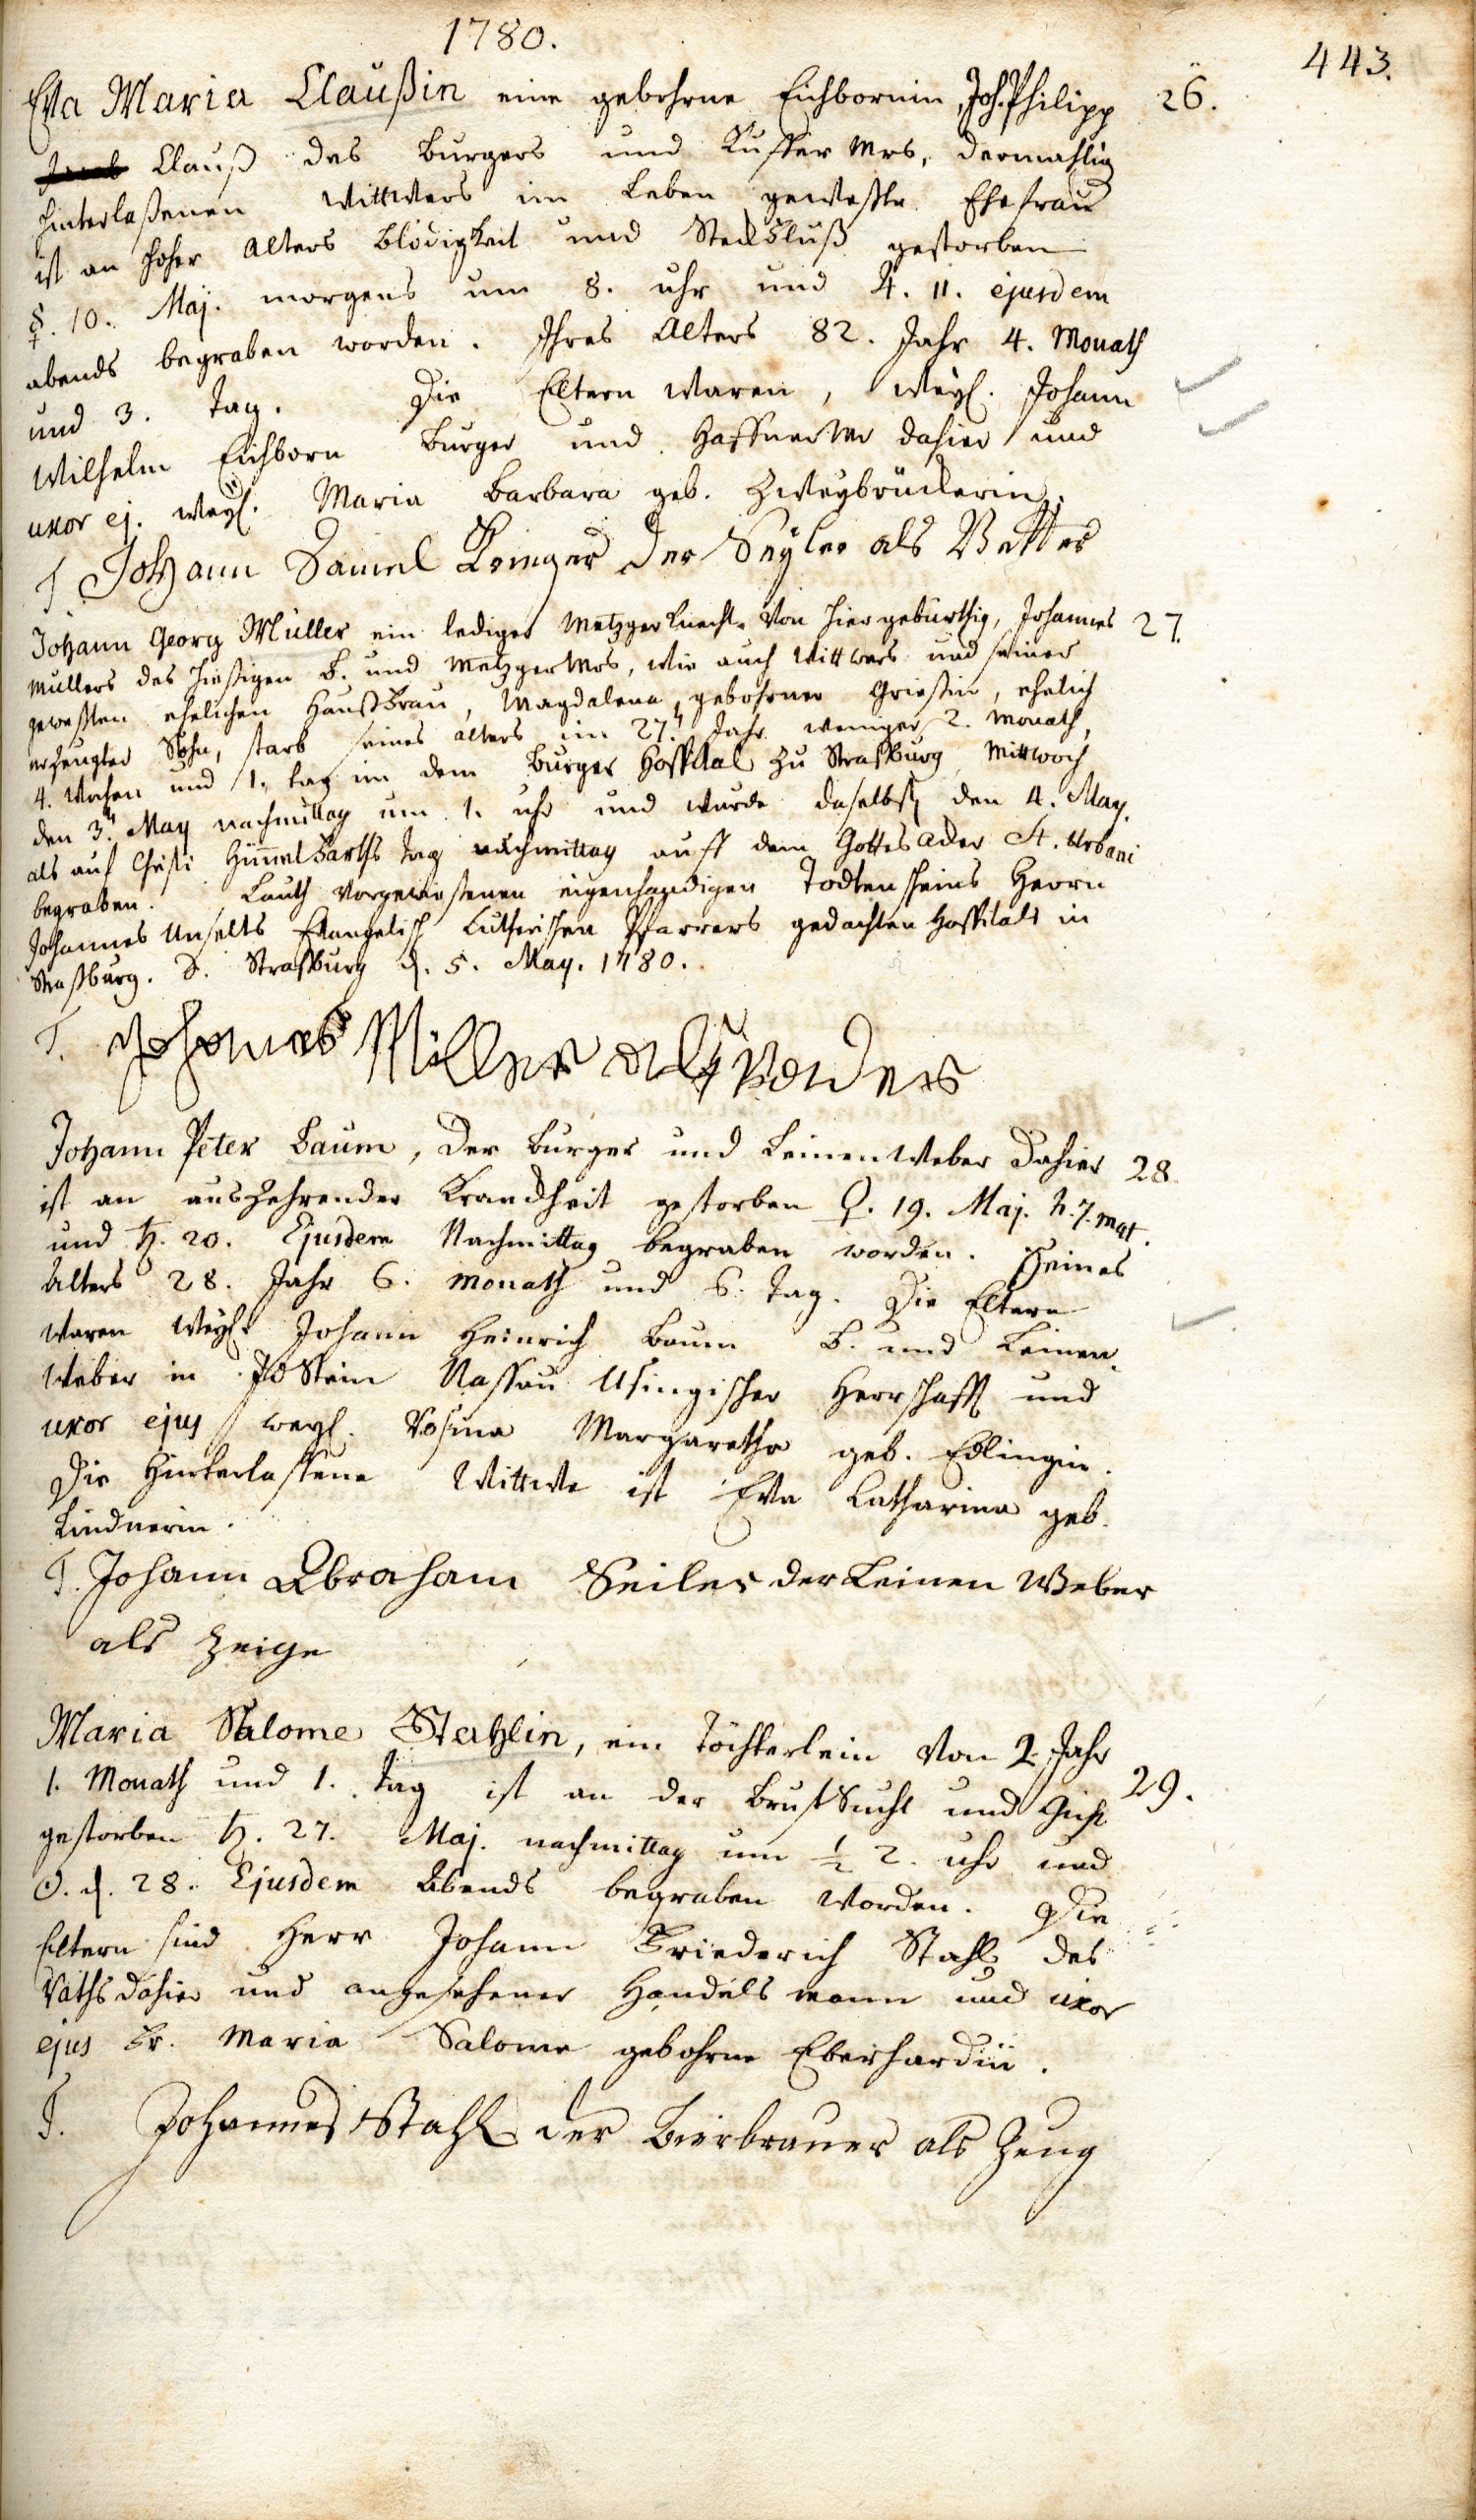 1780.
443.
Eva Maria Claußin eine gebohrne Eichbornin, Joh. Philipp 26.
Clauß des Burgers und Kuffer Mrs, dermahlig
hinterlaßenen Wittwers im Leben geweßte Ehefrau
ist an hoher Alters Blödigkeit und Steckfluß gestorben
☿. 10. Maj. morgens um 8. uhr und ♃. 11. ejusdem
abends begraben worden. Ihres Alters 82. Jahr 4. Monath
und 3. Tag. Die Eltern waren, weyl. Johann
Wilhelm Eichborn Burger und Haffner Mr dahier und
uxor ej. weyl. Maria Barbara geb. Zweybrückerin.
T. Johann Daniel Krieger der Seyler als Vetter
Johann Georg Müller ein lediger Metzger Knecht von hier gebürthig, Johannes 27.
Müllers des hießigen B. und Metzger Mrs, wie auch Wittwers und seiner
geweßten ehelichen Haußfrau, Magdalena, gebohrner Grießin, ehelich
erzeugter Sohn, starb seines alters im 27.ten Jahr weniger 2. Monath,
4. Wochen und 1. tag in dem Burger Hospital zu Straßburg, Mittwoch
den 3.ten May nachmittag um 1. uhr und wurde daselbst den 4. May.
als auf Christi Himmelfarths tag nachmittag auff dem Gottes Acker St. Urbani
begraben. Lauth vorgewießenen eigenhändigen Todtenscheins Herrn
Johannes Unselts Evangelisch Lutherischen Pfarrers gedachten Hospitals in
Straßburg. D. Straßburg d. 5. May. 1780.
T. Johannes Müller als Vatter
Johann Peter Baum, der Burger und Leinenweber dahier 28.
ist an auszehrender Kranckheit gestorben ♀. 19. Maj. h. 7. mat.
und ♄. 20. Ejusdem Nachmittag begraben worden. Seines
Alters 28. Jahr 6. Monath und 6. Tag. Die Eltern
waren weyl. Johann Heinrich Baum B. und Leinen-
weber in Idstein Nassau Usingischer Herrschafft und
uxor ejus weyl. Rosina Margaretha geb. Edlingin.
Die Hinterlassene Wittwe ist Eva Catharina geb.
Lindnerin.
T. Johann Abraham Seiler der Leinen Weber
als Zeige
Maria Salome Stahlin, ein Töchterlein von 2. Jahr
1. Monath und 1. Tag ist an der Brust Sucht und Gicht 29.
gestorben ♄. 27. Maj. nachmittag um ½ 2. uhr und
☉. d. 28. Ejusdem Abends begraben worden. Die
Eltern sind Herr Johann Friederich Stahl des
Raths dahier und angesehener Handelsmann und uxor
ejus Fr. Maria Salome gebohrne Eberhardin.
T. Johannes Stahl der Bierbrauer als Zeug